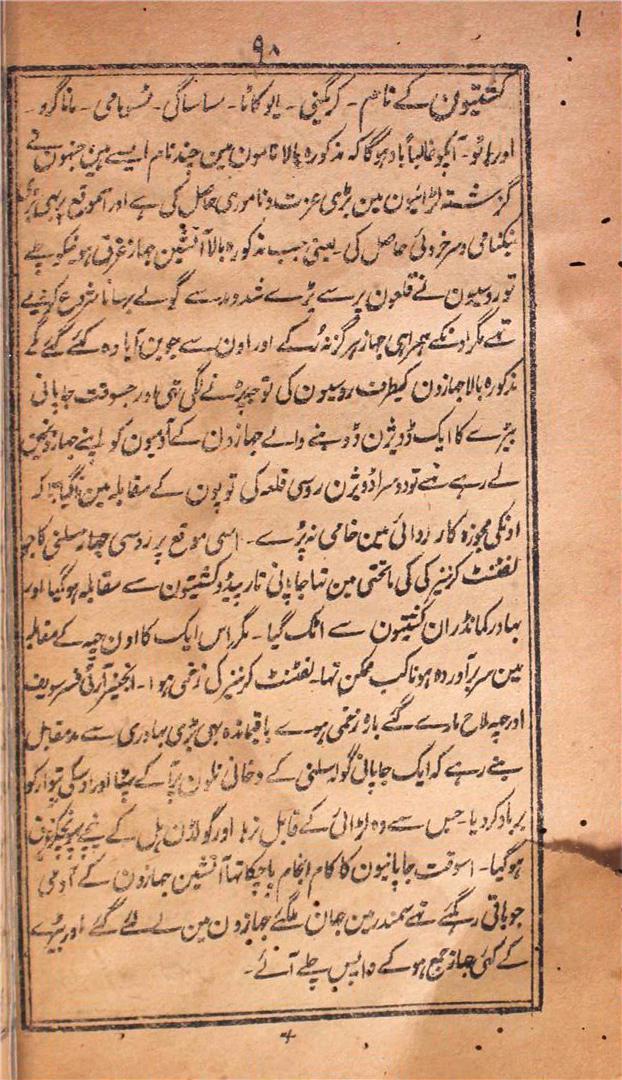 ۹۸
کشتیون کے نام ۔ کرگینی ۔ ایوکاٹا ۔ ساساگی ۔ ۔ ماناگرو ۔
اور ہاٹو ۔ آپکو غالباً یاد ہوگا کہ مذکورہ بالا نامون مین چند نام ایسے ہین جنہون نے
گزشتہ لڑائیون مین بڑی عزت و ناموری حاصل کی ہے اور اسموقع پر بہی
نیکنامی و سرخروئی حاصل کی یعنی جب مذکورہ بالا آتشین جہاز غرق ہونیکو تہے
تو روسیون نے قلعون پر سے بڑے شد و مد سے گولے برسانا شروع کردیے
تہے مگر اونکے ہمراہی جہاز ہرگز نہ رُکے اور اون سے جو بن آیا وہ کئے گئے گے
مذکورہ بالا جہازون کیطرف روسیون کی توجہ پڑنے لگی تہی اور جسوقت جاپانی
بیڑے کا ایک ڈویژن ڈوبنے والے جہازون کے آدمیون کو اپنے جہازونمین
لے رہے تہے تو دوسرا ڈویژن روسی قلعہ کی توپون کے مقابلہ مین تاکہ
اونکی مجوزہ کارروائی مین خامی نہ پڑے ۔ اسی موقع پر روسی جہاز سلنی کا جو
لفٹنٹ کرنیز کی کی ماتحتی مین تہا جاپانی تارپیڈو کشتیون سے مقابلہ ہوگیا اور
بہادر کمانڈر ان کشتیون سے اٹک گیا ۔ مگر اس ایک کا اون چہ کے مقابلہ
مین سربرآوردہ ہونا کب ممکن تہا ۔ لفٹنٹ کرنیز کی زخمی ہوا ۔ انجنیر آرٹی فسر سویف
اور چہہ ملاح مارے گئے بارہ زخمی ہوے باقیماندہ بھی بڑی بہادری سے مدمقابل
بنے رہے کہ ایک جاپانی گولہ سلنی کے دخانی نلون پر آ کے پہٹا اور اوسکی پتوار کو
برباد کر دیا ۔ جس سے وہ لڑائی کے قابل نرہا اور گولڈن ہل کے نیچے پہونچکر غرق
ہوگیا ۔ اسوقت جاپانیون کا کام انجام پاچکا تہا آتشین جہازون کے آدمی
جو باقی رہگئے تہے سمندر مین جہان ملگئے جہازون مین لے لئے گئے اور بیڑے
کے کئی جہاز جمع ہوکے واپس چلے آئے ۔